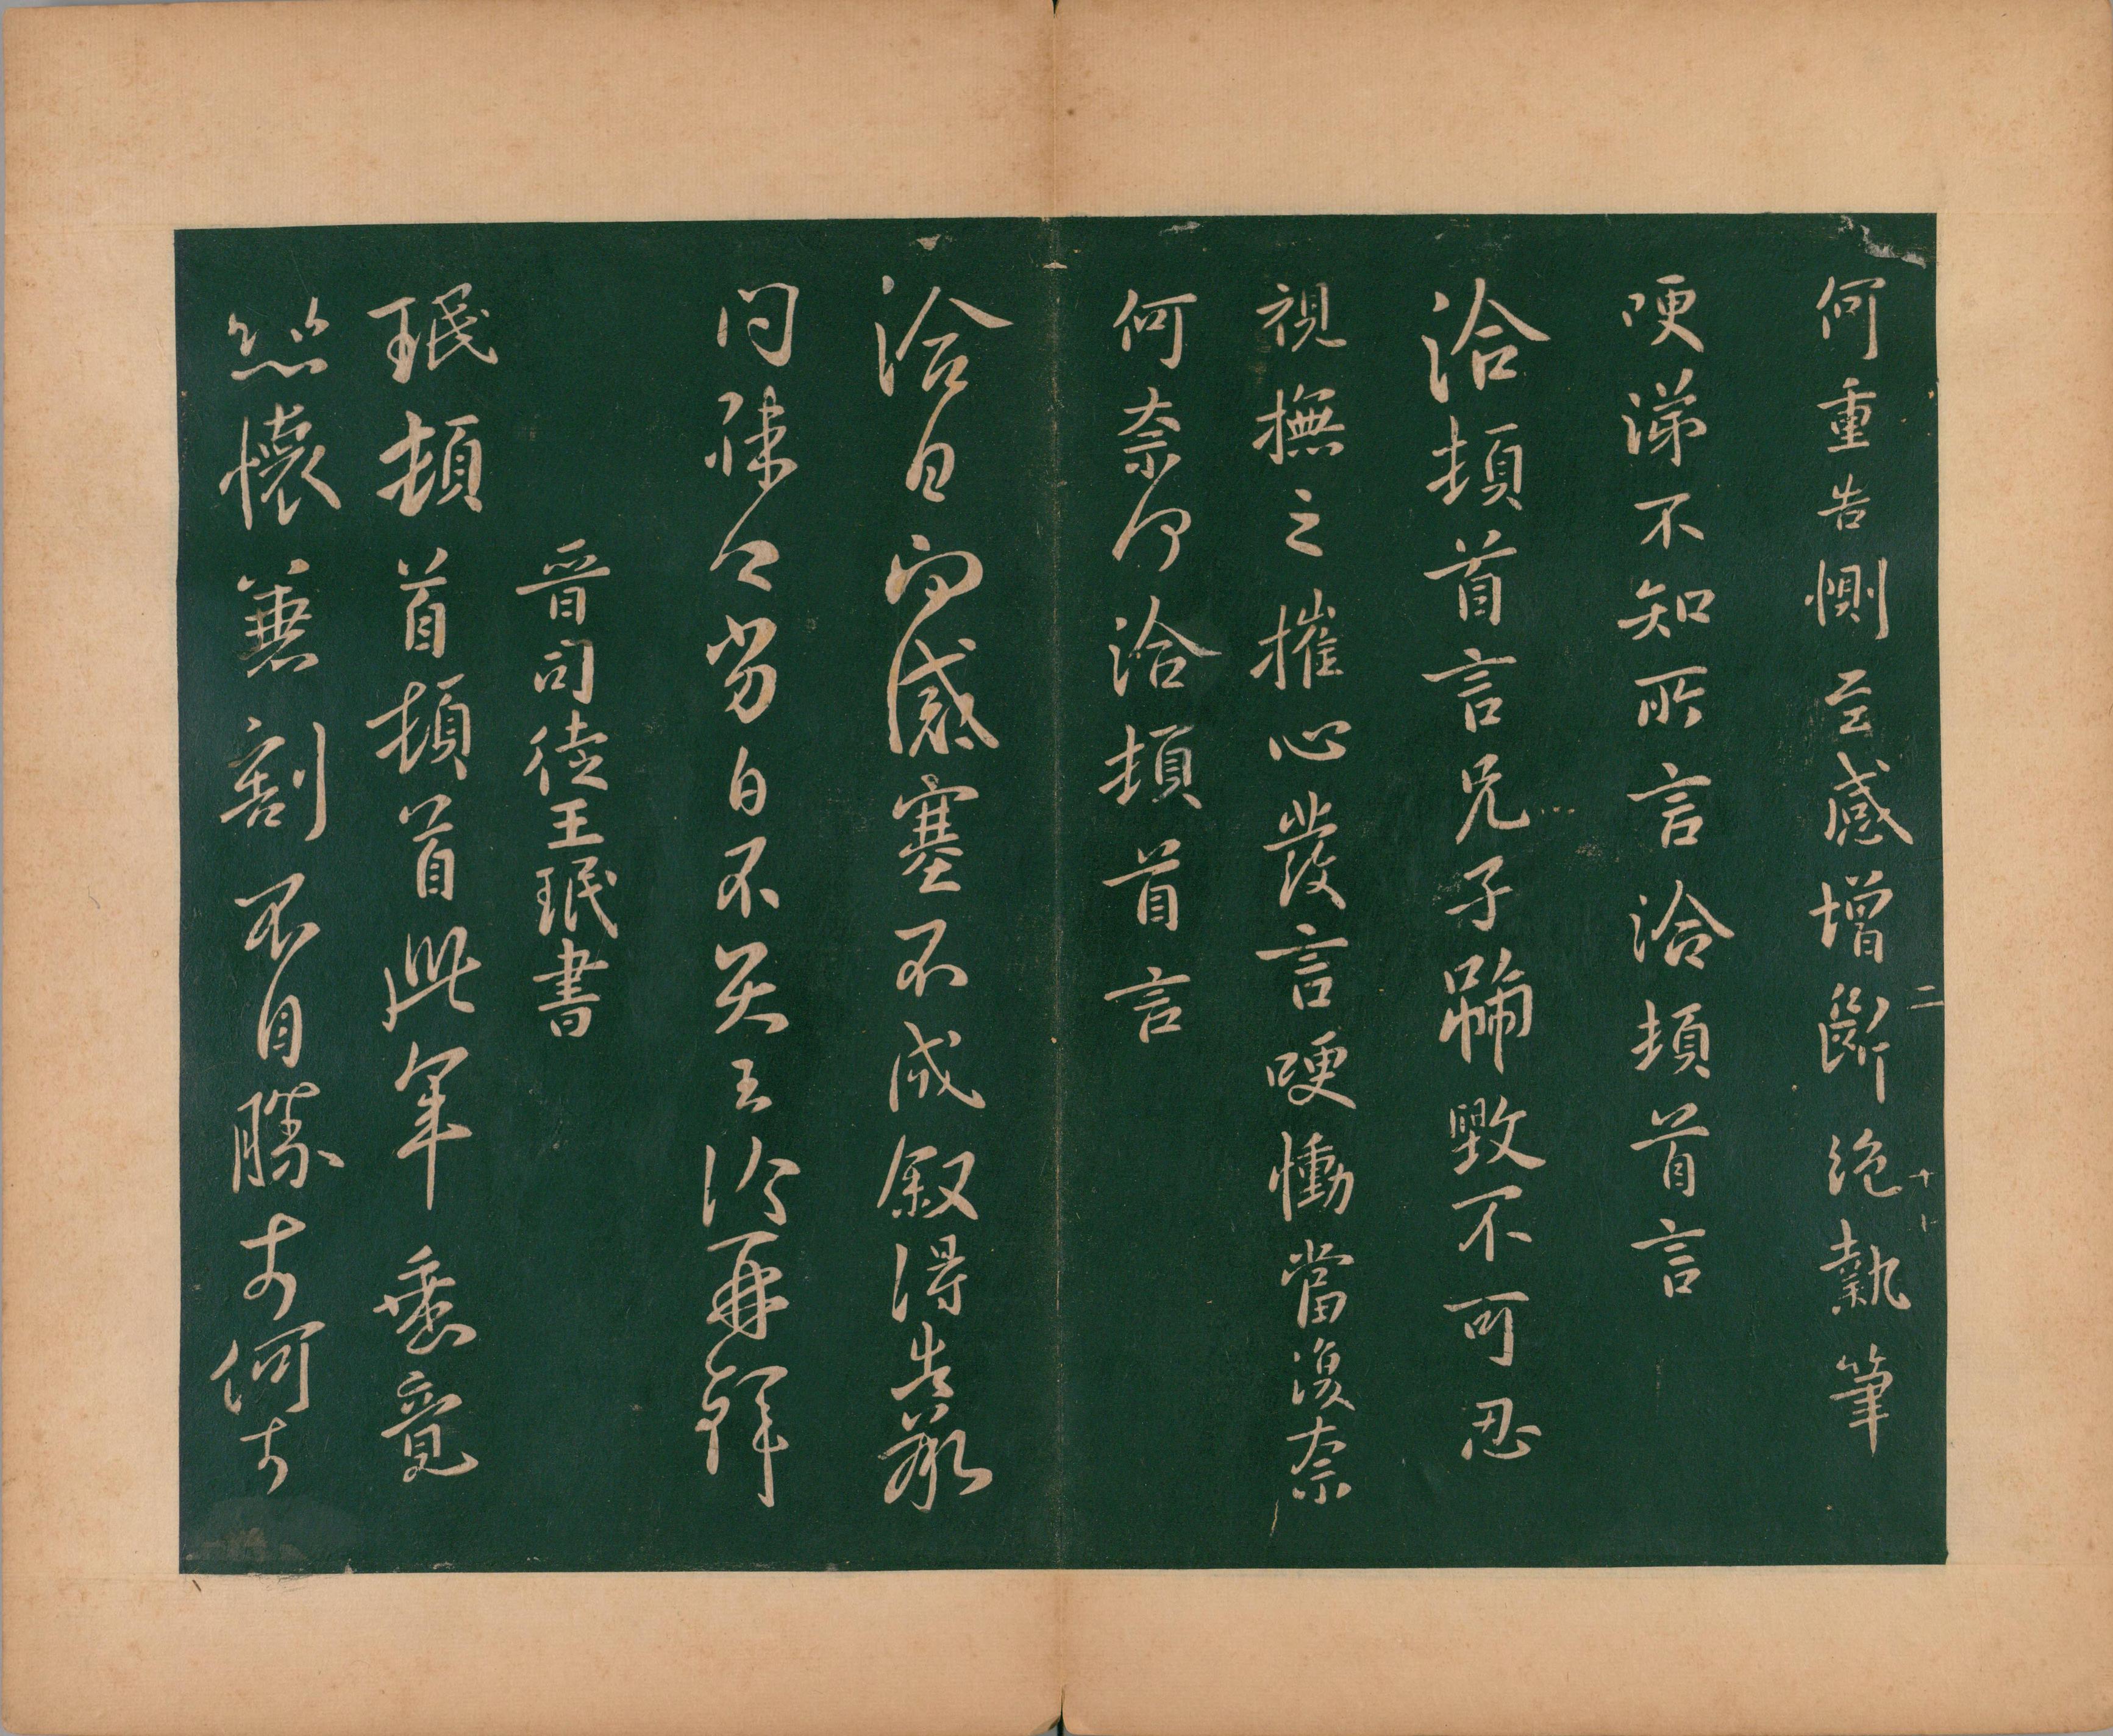 何重告惻至感增斷絕執筆
哽涕不知所言洽頓首言
洽頓首言兄子號毀不可忍
視撫之摧心發言哽慟當復奈
何奈何洽頓首言
洽白感塞不成叙得告
問白不具王洽再拜
晉司徒王珉書
珉頓首頓首此年垂竟
懷兼割不自勝奈何奈
二
十